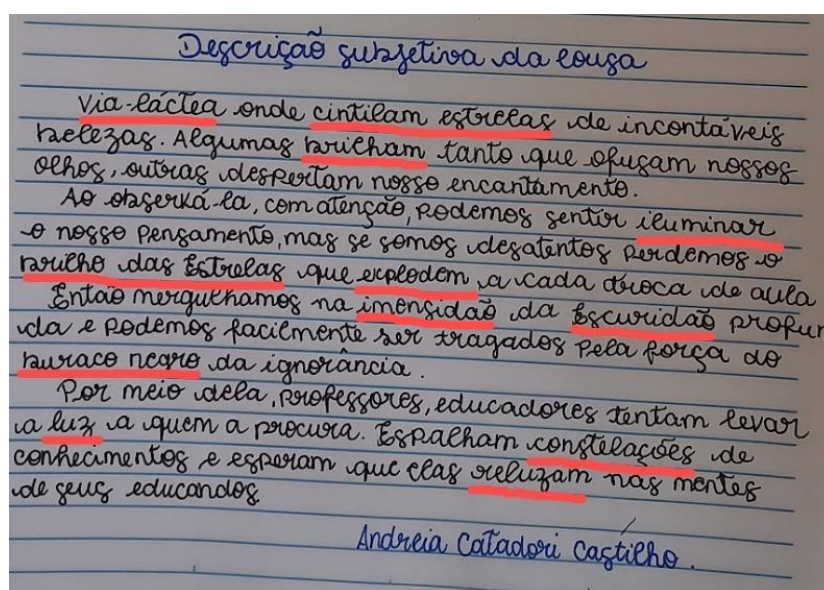 Descrição subjetiva da lousa
Via-láctea onde cintilam estrelas de incontáveis
belezas. Algumas brilham tanto que ofusam nossos
olhos, outras despertam nosso encantamento.
Ao observá-la, com atenção, podemos sentir iluminar
o nosso pensamento, mas se somos desatentos perdemos o
brilho das Estrelas que explodem a cada troca de aula
Então mergulhamos na imensidão da Escuridão profun
da e podemos facilmente ser tragados pela força do
buraco negro da ignorância.
Por meio dela, professores, educadores tentam levar
a luz a quem a procura. Espalham constelações de
conhecimentos e esperam que elas reluzam nas mentes
de seus educandos
Andreia Catadori Castilho.